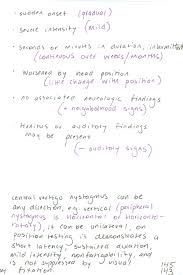 • sudden onset (gradual)
• severe intensity (mild)
• seconds or minutes in duration, intermittent
(continuous over weeks/months)
• worsened by head position
(little change with position)
• no associated neurologic findings
(+ neighborhood signs)
tinnitus or auditory findings
may be present
(- auditory signs)
central vertigo nystagmus can be
any direction, e.g. vertical (peripheral
nystagmus is horizontal or horizonto-
rotary), it can be unilateral, on
position testing it demonstrates a
short latency, sustained duration,
mild intensity, nonfatigability, and
is not suppressed by visual
fixation
145
143